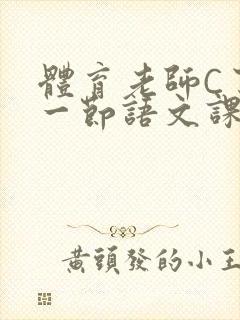 體育老師C
一節語文課
黃頭發的小王